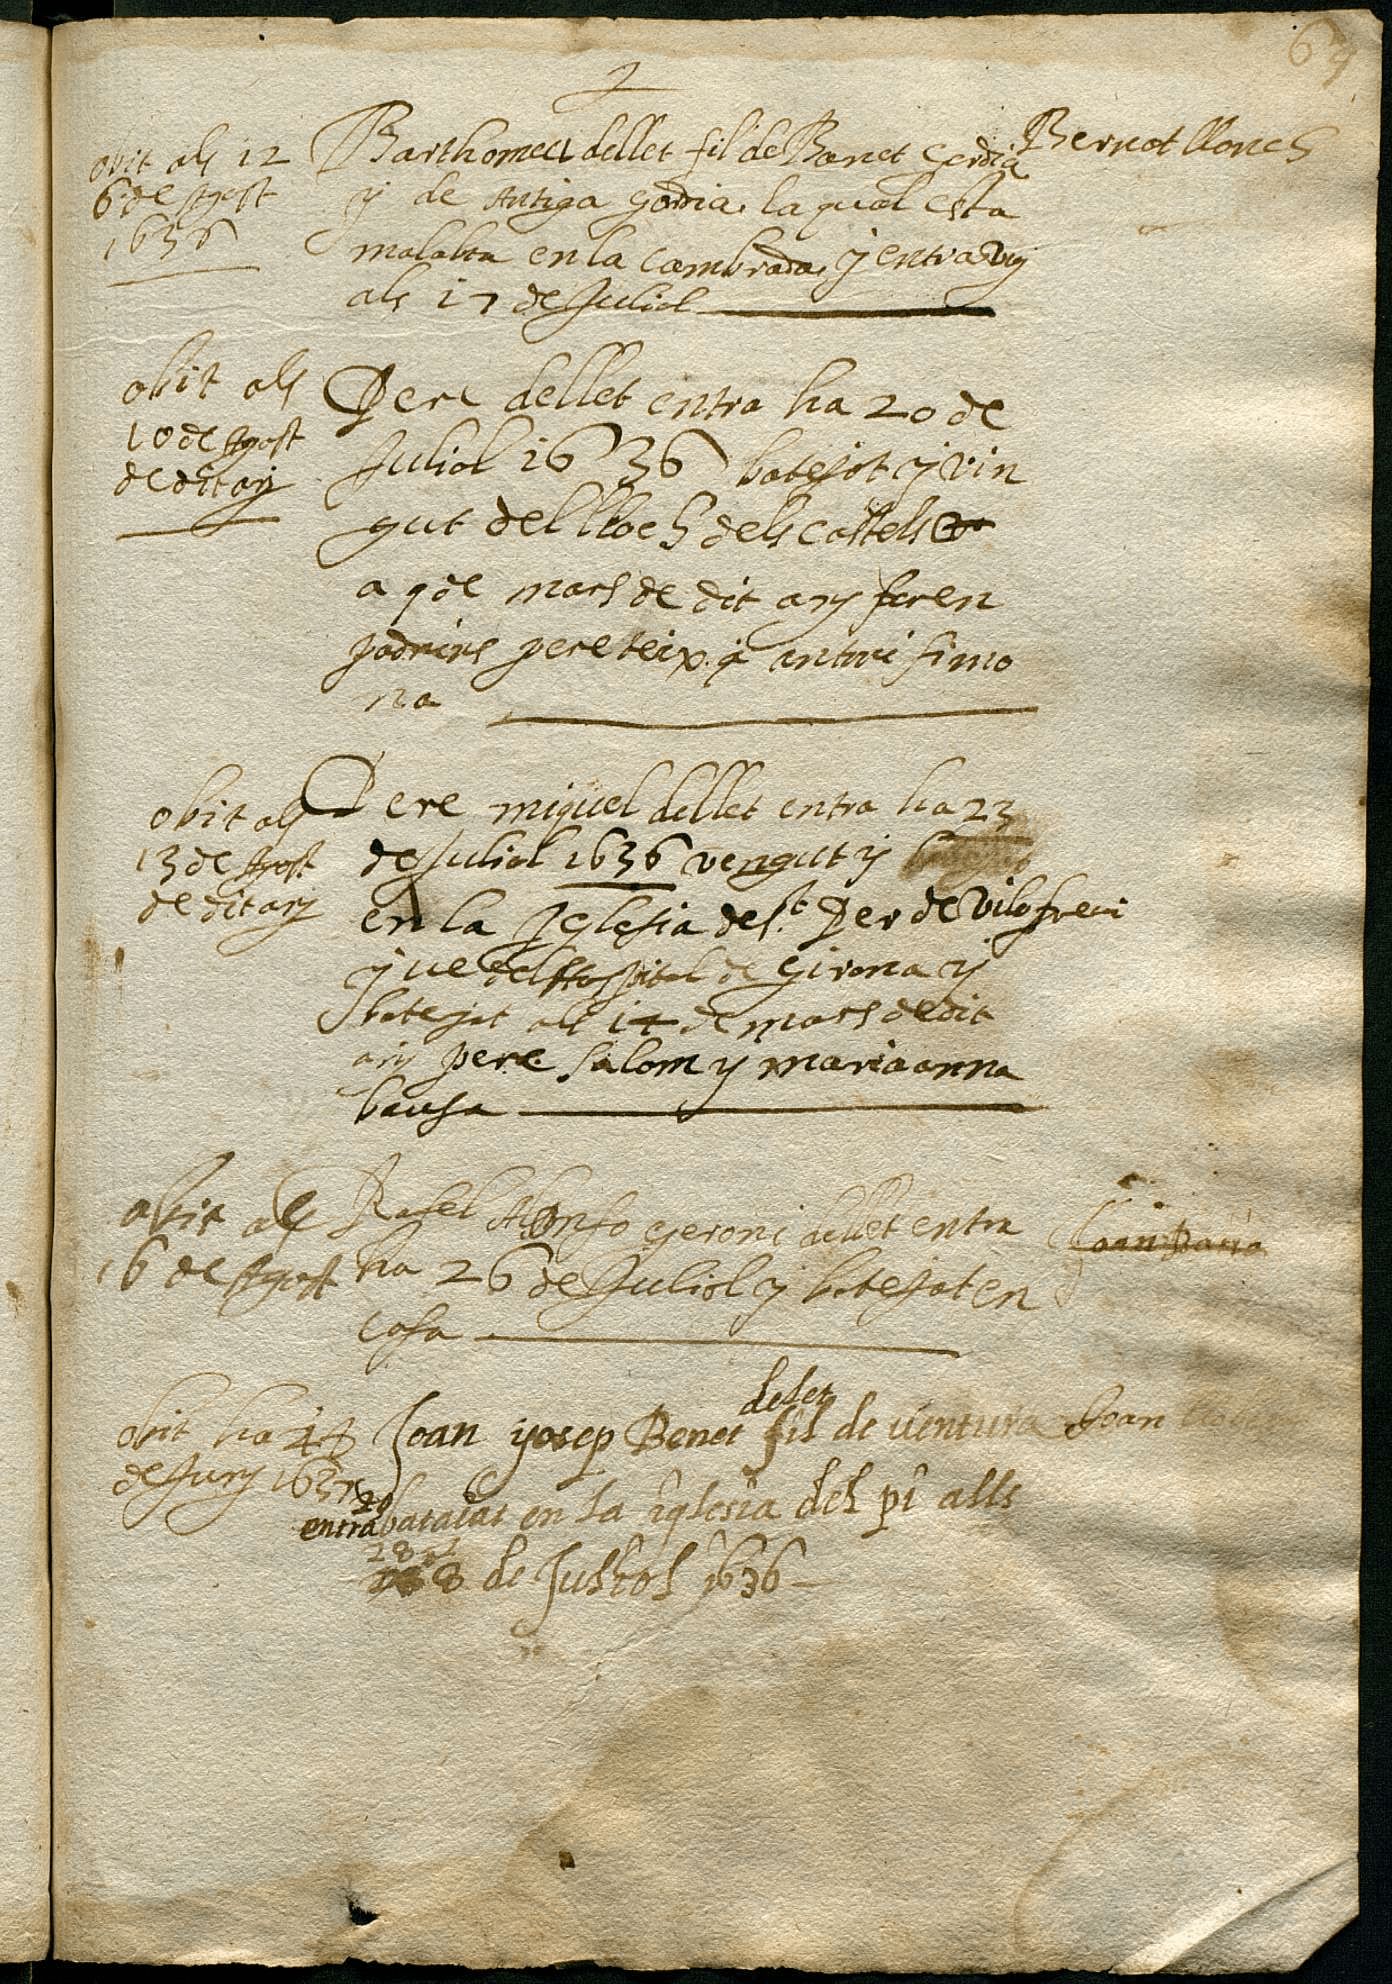 64
obit als 12
6 de Agost
1636
Barthomeu dellet fil de Benet Gordia
y de Antiga Gordia la qual esta
malalta en la cambrada, y entra vuy
als 17 de Juliol
Bernat llonch
obit als
10 de Agost
de dit añy
Pere dellet entra ha 20 de
Juliol 1636 batejat y vin
gut del lloch dels castells
a 9 de mars de dit any foren
padrins pere teix y antoni simo
na
obit als
13 de Agost
de dit any
Pere miquel dellet entra ha 23
de Juliol 1636 vengut y
en la Iglesia de St. Per de Vila
y ve del Hospital de Girona y
batejat als 14 de mars de dit
any pere salom y maria anna
bausa
obit als
16 de Agost
Rafel Alonso geroni dellet entra
ha 26 de Juliol y batejat en
casa
obit ha
de Juny 163
delet
Joan yosep Benet fil de ventura
Joan
20
entra bataiat en la iglesia del pi alls
28
8 de Juliol 1636